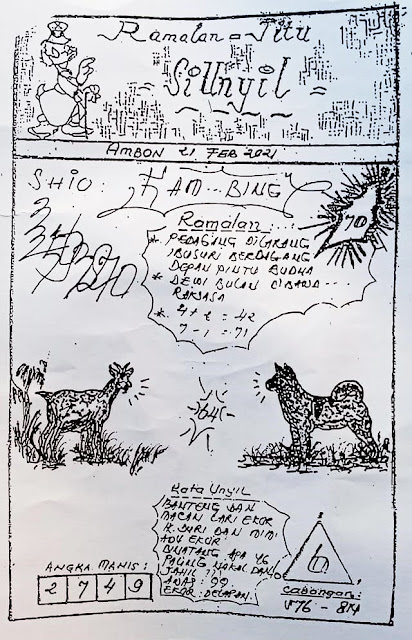 Ramalan = Jitu
= Si Unyil =
AMBON 21 FEB 2021
SHIO: KAM...BING
Ramalan:...
70
* PEDAGANG DILARANG
BERDAGANG
DEPAN PINTU BUDHA
* DEWI BULAN DIBAWA...
RAKSASA
* 4 + 2 = 42
7 - 1 = 71
64
Kata Unyil
BANTENG DAN
MACAN CARI EKOR
K. DURI DAN MIMI
ADU EKOR
BINATANG APA YG
PALING NAKAL DAN
JAHIL ??
ADAS: 99
EKOR: DELAPAN
ANGKA MANIS:
2 7 4 9
6
Cabangan: